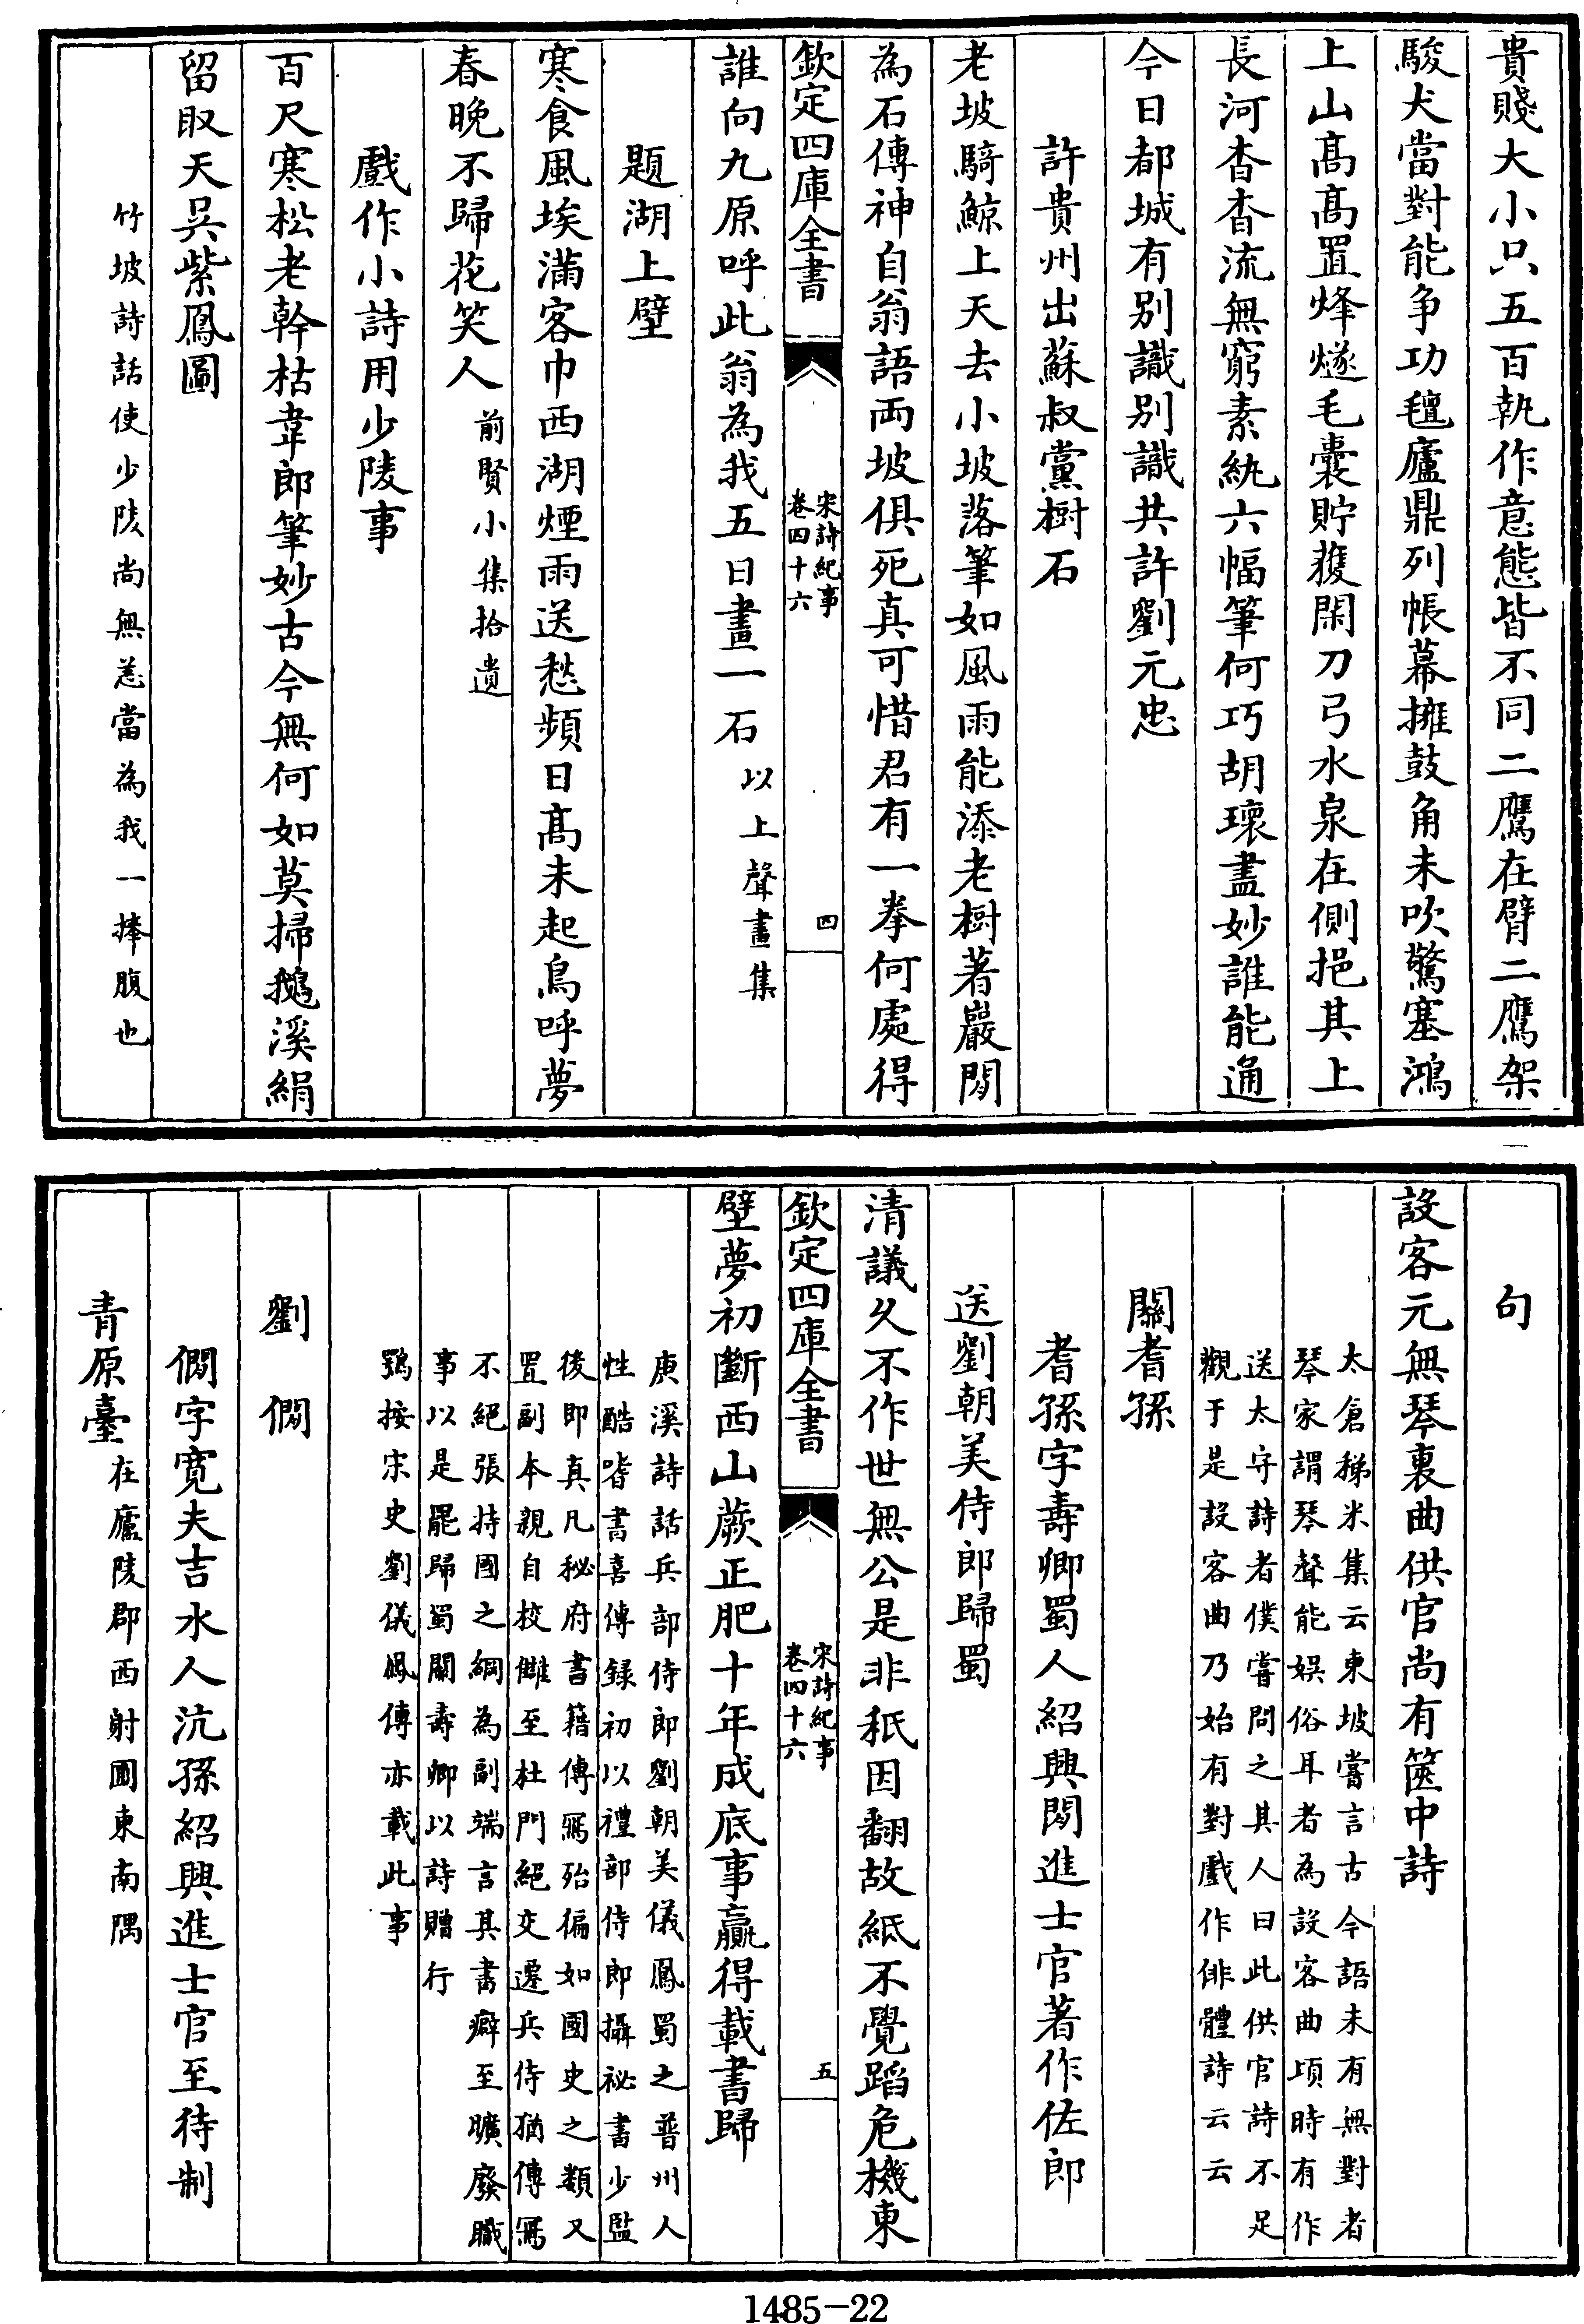 貴賤大小只五百執作意態皆不同二鷹在臂二鷹架
駿犬當對能争功氊廬鼎列帳幕擁鼓角未吹驚塞鴻
上山髙髙置烽燧毛囊貯穫閑刀弓水泉在側挹其上
長河杳杳流無窮素紈六幅筆何巧胡瓌盡妙誰能通
今日都城有别識别識共許劉元忠
許貴州出蘇叔黨樹石
老坡騎鯨上天去小坡落筆如風雨能添老樹著巖間
為石傳神自翁語两坡俱死真可惜君有一拳何處得
欽定四庫全書
宋詩紀事
卷四十六
四
誰向九原呼此翁為我五日畫一石以上聲畫集
題湖上壁
寒食風埃滿客巾西湖煙雨送愁頻日髙未起鳥呼夢
春晚不歸花笑人前賢小集拾遺
戲作小詩用少陵事
百尺寒松老幹枯韋郎筆妙古今無何如莫掃鵝溪絹
留取天吳紫鳳圖
竹坡詩話使少陵尚無恙當為我一捧腹也
句
設客元無琴裏曲供官尚有篋中詩
太倉稊米集云東坡嘗言古今語未有無對者
琴家謂琴聲能娯俗耳者為設客曲頃時有作
送太守詩者僕嘗問之其人曰此供官詩不足
觀于是設客曲乃始有對戲作俳體詩云云
關耆孫
耆孫字壽卿蜀人紹興間進士官著作佐郎
送劉朝美侍郎歸蜀
清議乆不作世無公是非秖因翻故紙不覺蹈危機東
欽定四庫全書
宋詩紀事
卷四十六
五
壁夢初斷西山蕨正肥十年成底事贏得載書歸
庚溪詩話兵部侍郎劉朝美儀鳳蜀之普州人
性酷嗜書喜傳録初以禮部侍郎攝祕書少監
後即真凡秘府書籍傳寫殆徧如國史之類又
置副本親自校讎至杜門絕交遷兵侍猶傳寫
不絕張持國之綱為副端言其書癖至曠廢職
事以是罷歸蜀關壽卿以詩贈行
鶚按宋史劉儀鳳傳亦載此事
劉㒞
㒞字寛夫吉水人沆孫紹興進士官至待制
青原臺在廬陵郡西射圃東南隅
1485-22